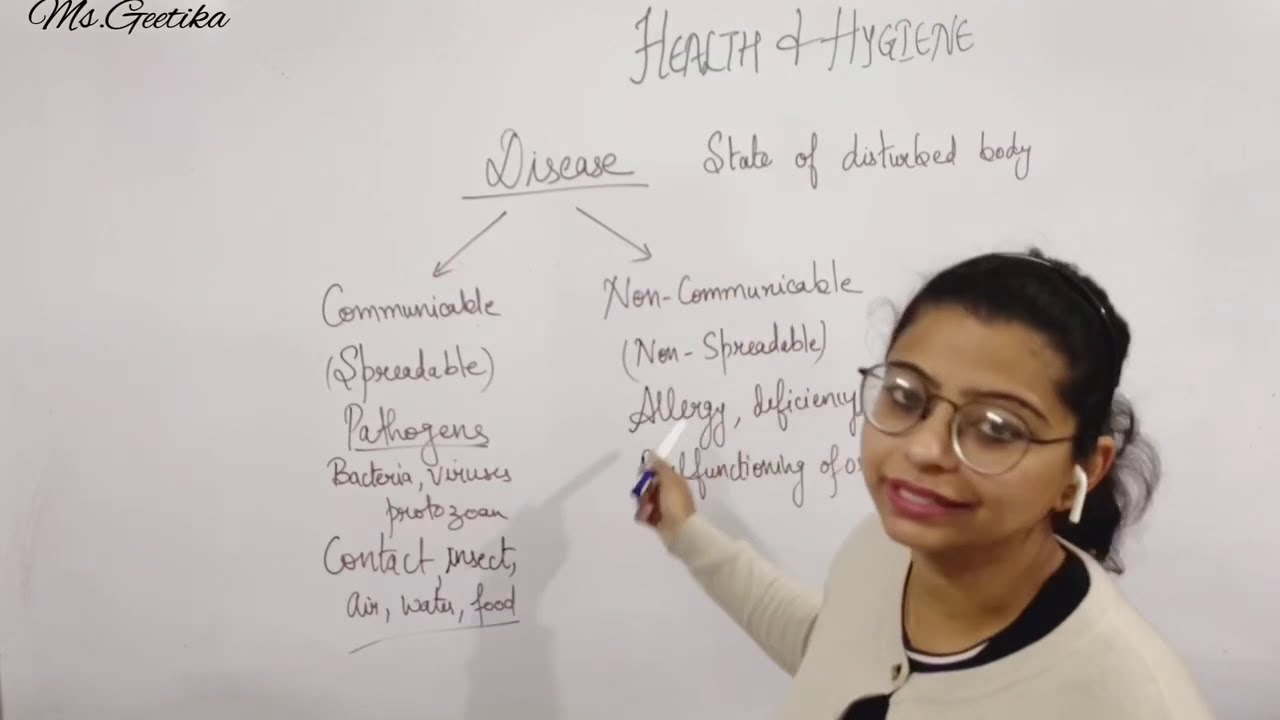 Ms.Geetika
HEALTH & HYGIENE
Disease State of disturbed body
Communicable
(Spreadable)
Pathogens
Bacteria, Viruses
protozoan
Contact, insect,
air, water, food
Non-Communicable
(Non-Spreadable)
Allergy, deficiency
functioning of